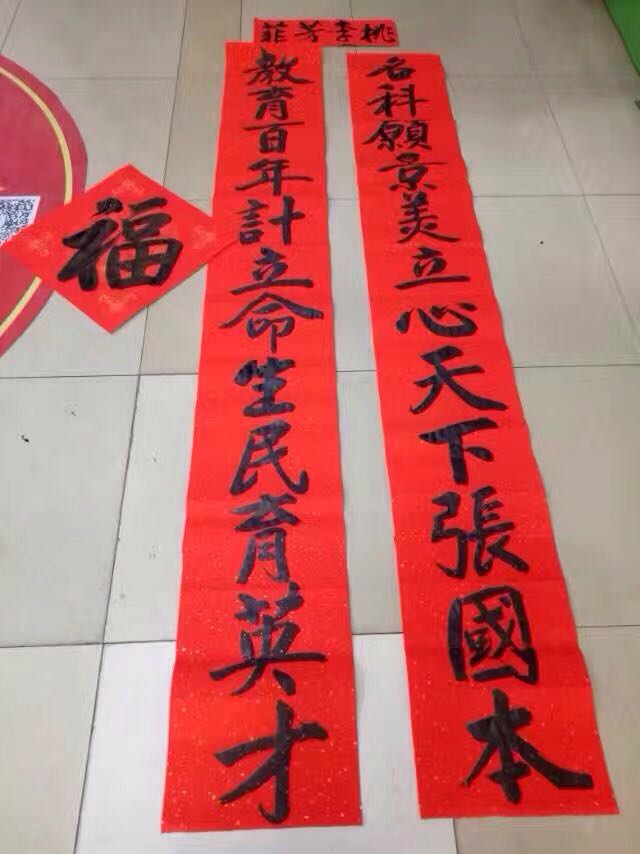 桃李芳菲
名科願景美立心天下張國本
教育百年計立命生民育英才
福